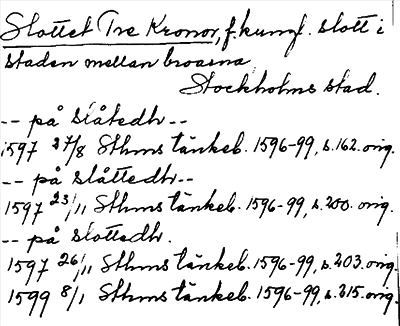 Slottet Tre Kronor, f. kungl. slott i
staden mellan broarna
Stockholms stad.
-- på slåtedh --
1597 27/8 Sthms tänkeb. 1596-99, s. 162. orig.
-- på slåttedh --
1597 23/11 Sthms tänkeb. 1596-99, s. 200. orig.
-- på slottedh.
1597 26/11 Sthms tänkeb. 1596-99, s. 203. orig.
1599 8/1 Sthms tänkeb. 1596-99, s. 315. orig.